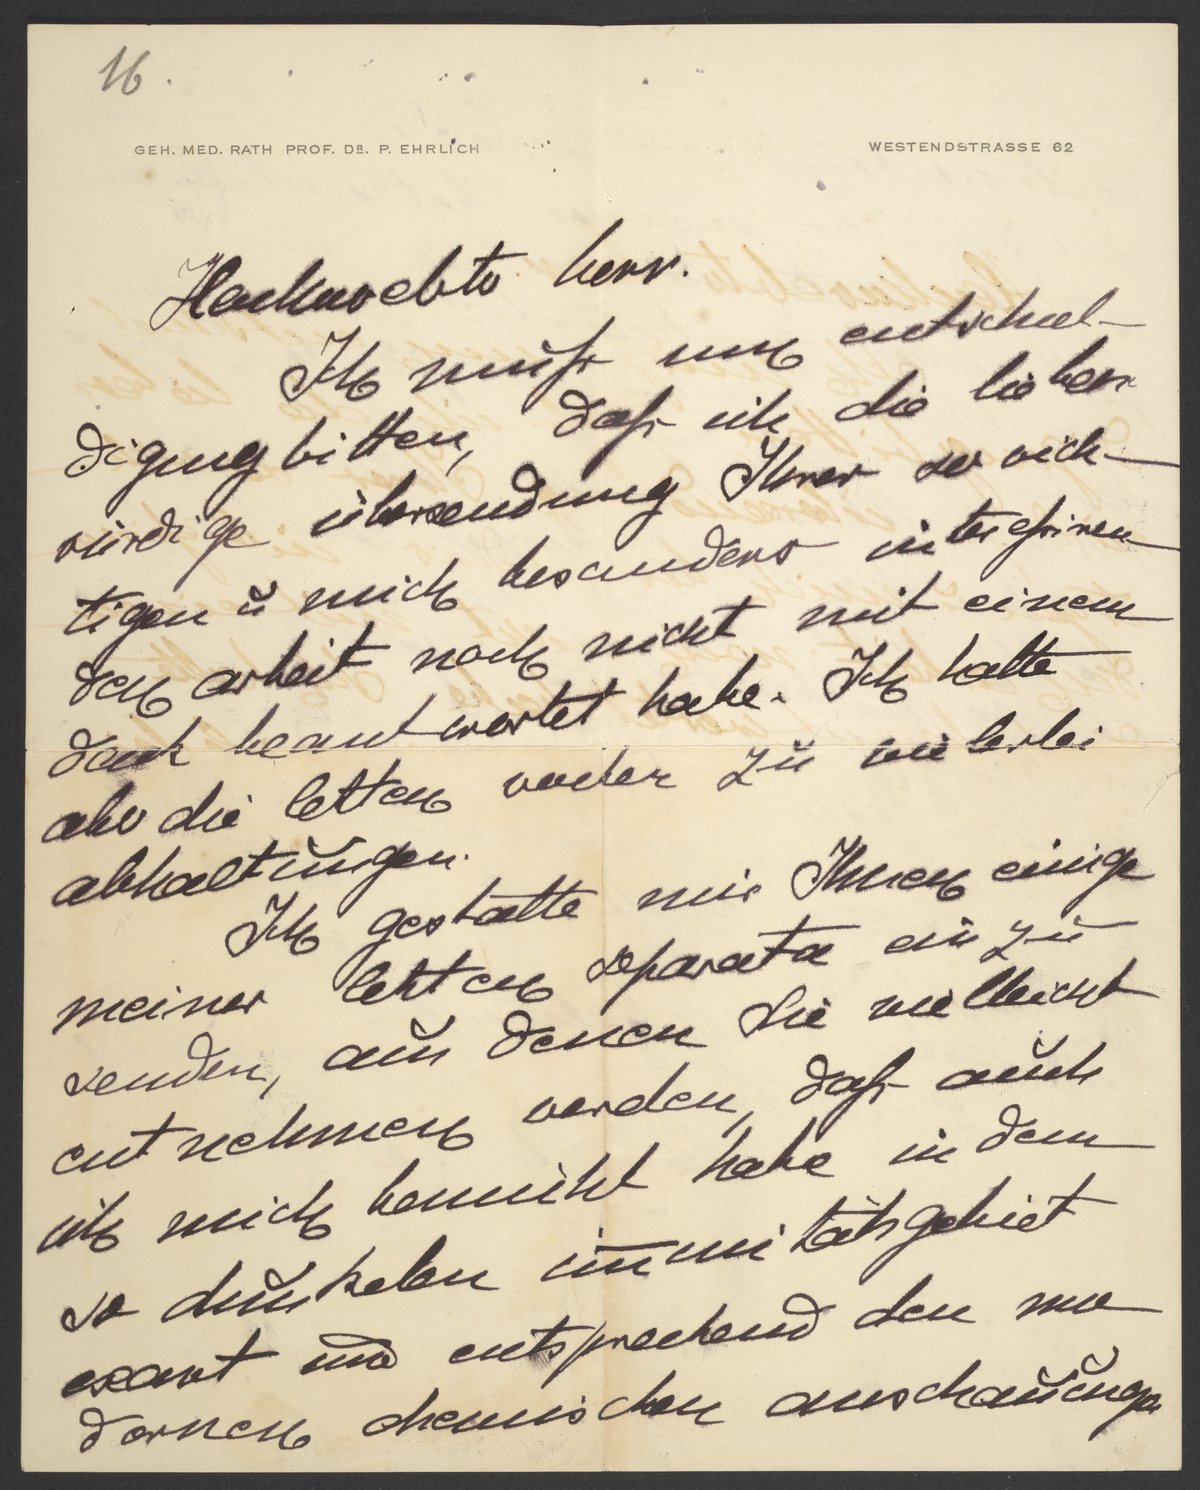 16.
GEH. MED. RATH PROF. DR. P. EHRLICH
WESTENDSTRASSE 62
Hochverehrter herr.
Ich muss um entschul-
digung bitten, dass ich die liebens
würdige übersendung Ihrer so wich-
tigen u mich besonders interessiren
den arbeit noch nicht mit einem
dank beantwortet habe. Ich hatte
aber die letzten wochen zu vielerlei
abhaltungen.
Ich gestatte mir Ihnen einige
meiner letzten separata ein zu
senden, aus denen Sie vielleicht
entnehmen werden, dass auch
ich mich bemüht habe in dem
so dunkelen im̅unitätsgebiet
exact und entsprechend den mo
dernen chemischen anschauungen